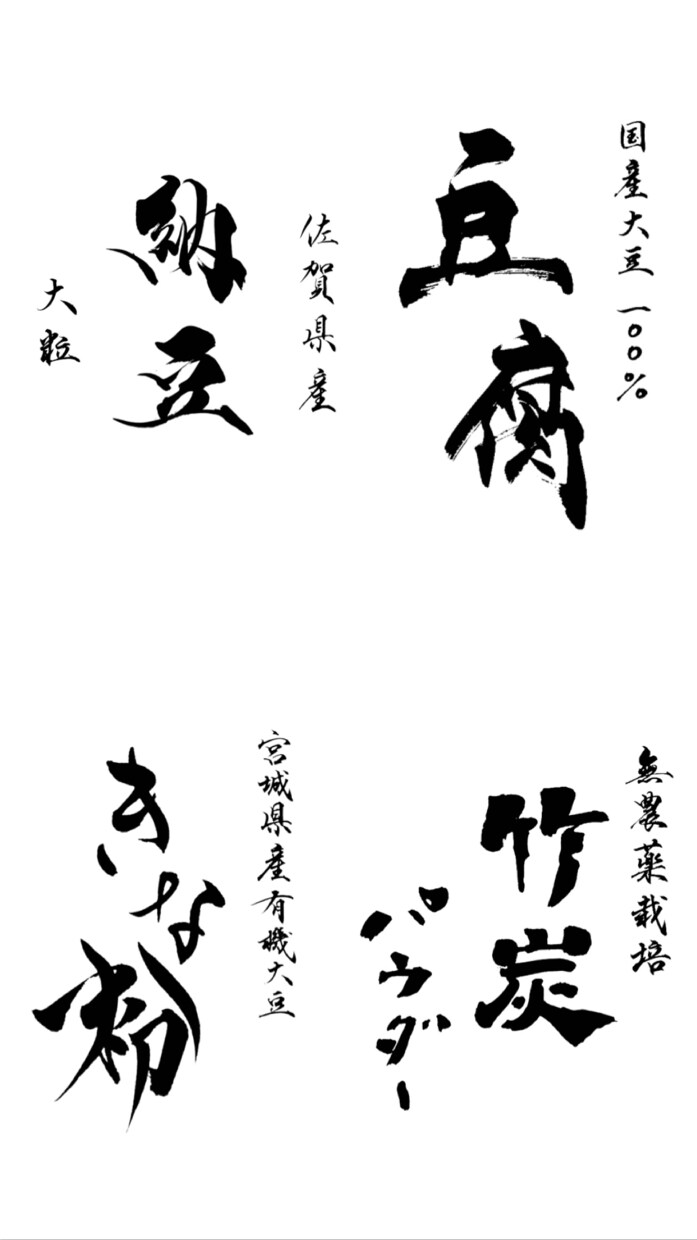 国産大豆一〇〇%
豆腐
佐賀県産
納豆
大粒
無農薬栽培
竹炭
パウダー
宮城県産有機大豆
きな粉